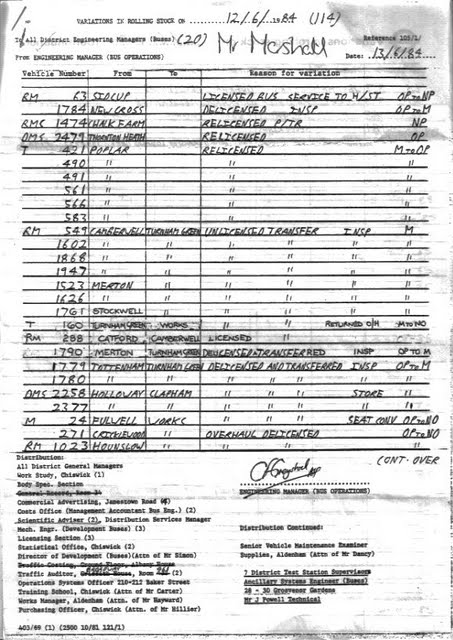 VARIATIONS IN ROLLING STOCK ON 12/6/1984 (114)
To All District Engineering Managers (Buses) (20) Mr Marshall Reference 105/1/
From ENGINEERING MANAGER (BUS OPERATIONS) Date: 13/6/84
Vehicle Number From To Reason for variation
RM 83 SIDCUP LICENSED BUS SERVICE TO H/ST OP to NP
1784 NEW CROSS DELICENSED INSP OP to M
RMS 1474 CHALK FARM RELICENSED P/TR NP
DMS 2479 THORNTON HEATH RELICENSED OP
T 421 POPLAR RELICENSED M to OP
490 " " "
491 " " "
561 " " "
566 " " "
583 " " "
RM 549 CAMBERWELL TURNHAM GREEN UNLICENSED TRANSFER INSP M
1602 " " " " " "
1868 " " " " " "
1947 " " " " " "
1523 MERTON " " " " "
1626 " " " " " "
1761 STOCKWELL " " " " "
T 160 TURNHAM GREEN WORKS RETURNED O/H M to NO
RM 288 CATFORD CAMBERWELL LICENSED "
1790 MERTON TURNHAM GREEN DELICENSED & TRANSFERRED INSP OP to M
1779 TOTTENHAM TURNHAM GREEN DELICENSED AND TRANSFERRED INSP OP to M
1780 " " " " " " "
DMS 2258 HOLLOWAY CLAPHAM " " " STORE "
2377 " " " " " " "
M 24 FULWELL WORKS SEAT CONV OP to NO
271 CRICKLEWOOD " OVERHAUL DELICENSED OP to NO
RM 1023 HOUNSLOW " "
CONT. OVER
Distribution:
All District General Managers
Work Study, Chiswick (1)
Body Spec. Section
General Record, Room 34
ENGINEERING MANAGER (BUS OPERATIONS)
Commercial Advertising, Jamestown Road
Costs Office (Management Accountant Bus Eng.) (2)
Scientific Adviser (2), Distribution Services Manager
Mech. Engr. (Development Buses) (3)
Distribution Continued:
Licensing Section (3)
Statistical Office, Chiswick (2)
Senior Vehicle Maintenance Examiner
Director of Development (Buses)(Attn of Mr Simon)
Supplies, Aldenham (Attn of Mr Dancy)
Traffic Costing, Ground Floor, Albany House
Traffic Auditor, House, Room
7 District Test Station Supervisors
Operations Systems Officer 210-212 Baker Street
Ancillary Systems Engineer (Buses)
Training School, Chiswick (Attn of Mr Carter)
28 - 30 Grosvenor Gardens
Works Manager, Aldenham (Attn of Mr Hayward)
Mr J Powell Technical
Purchasing Officer, Chiswick (Attn of Mr Hillier)
403/69 (1) (2500 10/81 121/1)